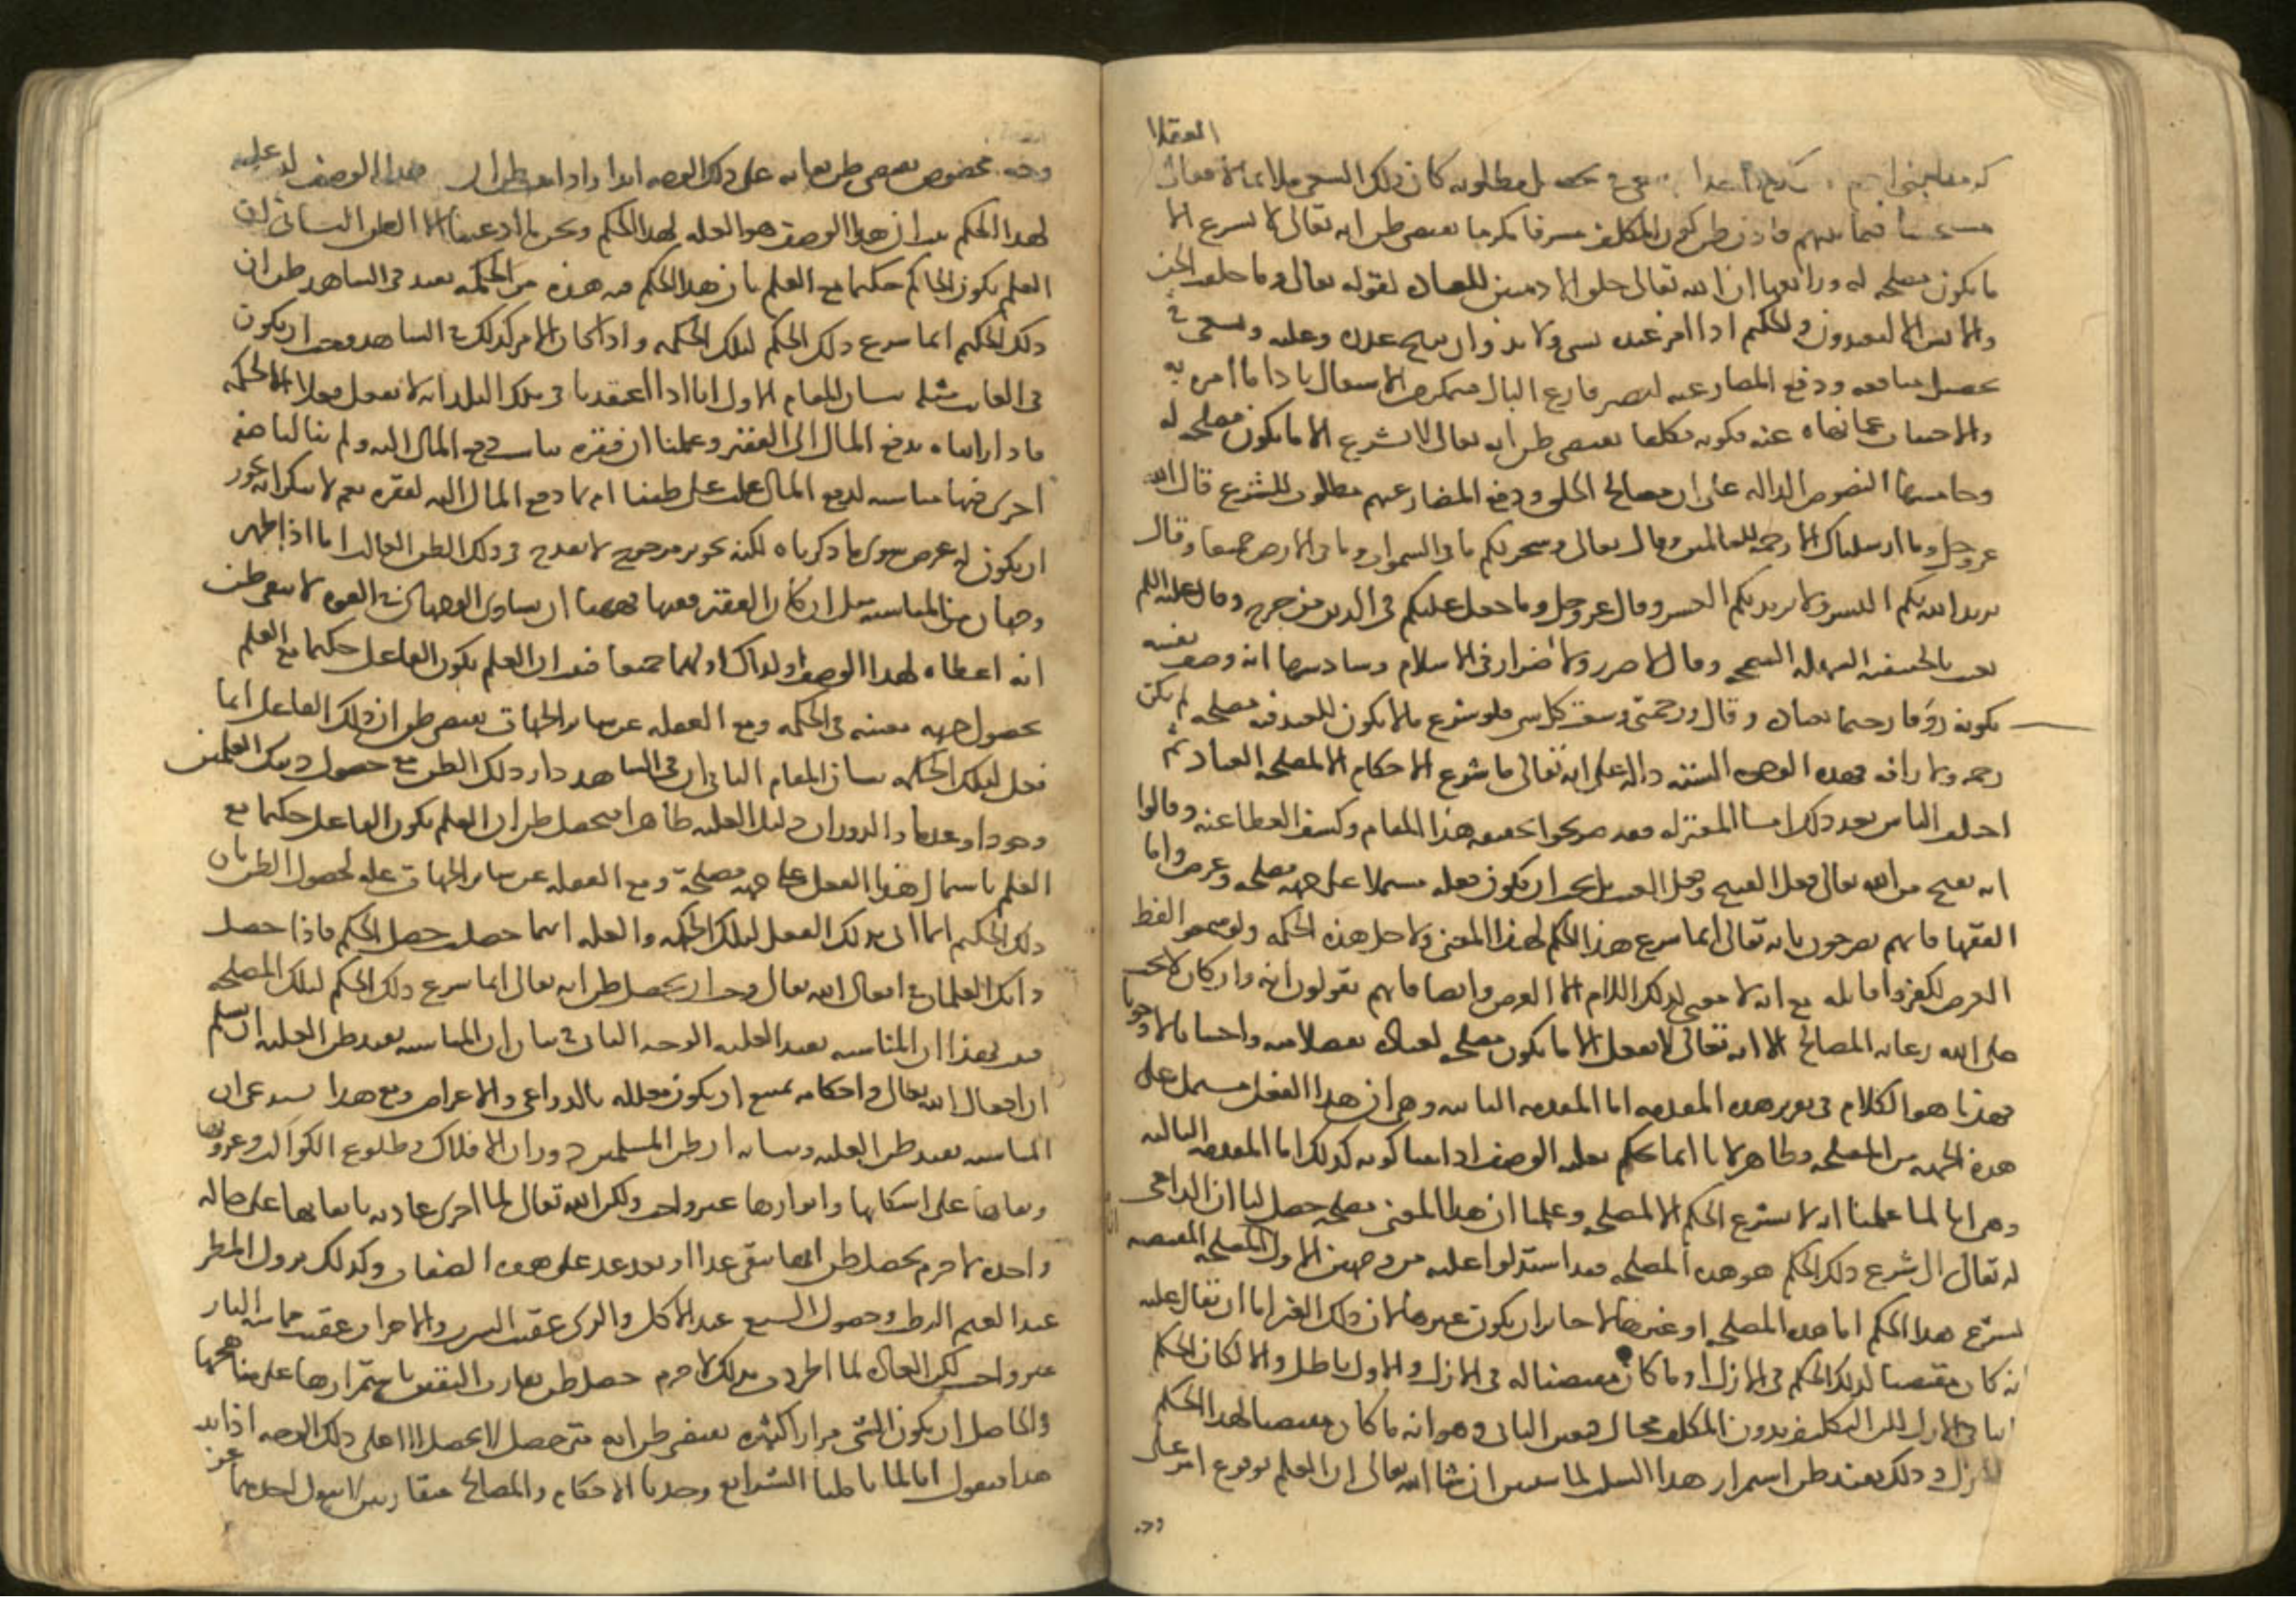 العقلا
كرمنا بني ادم سعى في تحصيل مطلوبه كان ذلك السعي ملائما لافعال
مستحسنا فيما بينهم فاذن ظن كون المكلف مشرفا مكرما يقتضي ظن انه تعالى لا يشرع الا
ما يكون مصلحة له ورابعها ان الله تعالى خلق الادميين للعبادة لقوله تعالى وما خلقت الجن
والانس الا ليعبدون والحكيم اذا امر عبده بشي ولا بد وان يزيح عذره وعلته ويسعى في
تحصيل منافعه ودفع المضار عنه ليصير فارغ البال فيتمكن من الاشتغال باداء ما امره به
والاجتناب عما نهاه عنه فكونه مكلفا يقتضي ظن انه تعالى لا يشرع الا ما يكون مصلحة له
وخامسها النصوص الدالة على ان مصالح الخلق ودفع المضار عنهم مطلوب للشرع قال الله
عز وجل وما ارسلناك الا رحمة للعالمين وقال تعالى وسخر لكم ما في السموات وما في الارض جميعا وقال
يريد الله بكم اليسر ولا يريد بكم العسر وقال عز وجل وما جعل عليكم في الدين من حرج وقال عليه السلم
بعثت بالحنيفية السهلة السمحة وقال لا ضرر ولا ضرار في الاسلام وسادسها انه وصف نفسه
بكونه رؤفا رحيما بعباده وقال ورحمتي وسعت كل شي فلو شرع ما لا يكون للعبد فيه مصلحة لم يكن
رحمة ولا رافة فهذه الوجوه الستة دالة على انه تعالى ما شرع الاحكام الا لمصلحة العباد ثم
اختلف الناس بعد ذلك اما المعتزلة فقد صرحوا بحقيقة هذا المقام وكشف الغطا عنه وقالوا
انه يقبح من الله تعالى فعل القبيح وفعل العبث بل يجب ان يكون فعله مشتملا على جهة مصلحة وغرض واما
الفقها فانهم يصرحون بانه تعالى انما شرع هذا الحكم لهذا المعنى ولاجل هذه الحكمة ولو سمعوا لفظ
الغرض لكفروا قايله مع انه لا معنى لذلك اللام الا الغرض وايضا فانهم يقولون انه وان كان لا يجب
على الله رعاية المصالح الا انه تعالى لا يفعل الا ما يكون مصلحة لعباده تفضلا منه واحسانا لا وجوبا
فهذا هو الكلام في تقرير هذه المقدمة اما المقدمة الثانية وهي ان هذا الفعل مشتمل على
هذه الجهة من المصلحة فظاهر لانا انما نحكم بعلية الوصف اذا بينا كونه كذلك اما المقدمة الثالثة
وهي انا لما علمنا انه لا يشرع الحكم الا لمصلحة وعلمنا ان هذا المعنى مصلحة حصل لنا ان الداعي
له تعالى الى شرع ذلك الحكم هو هذه المصلحة فقد استدلوا عليه من وجهين الاول المصلحة المقتضية
لشرع هذا الحكم اما هذه المصلحة او غيرها لا جايز ان يكون غيرها لان ذلك الغير اما ان يقال عليه
انه كان مقتضيا لذلك الحكم في الازل او ما كان مقتضيا له في الازل والاول باطل والا لكان الحكم
ثابتا في الازل لكن التكليف بدون المكلف محال فتعين الثاني وهو انه ما كان مقتضيا لهذا الحكم
في الازل وذلك يفيد ظن استمرار هذا السلب لما سنبين ان شا الله تعالى ان العلم بوقوع امر على
وجه مخصوص يقتضي ظن بقايه على ذلك الوجه ابدا واذا ثبت ظن ان هذا الوصف لعلية
لهذا الحكم ثبت ان هذا الوصف هو العلة لهذا الحكم ونحن ما ادعينا الا الظن الثاني ان
العلم بكون الحاكم حكيما مع العلم بان هذا الحكم فيه هذه من الحكمة يفيد في الشاهد ظن ان
ذلك الحكيم انما شرع ذلك الحكم لتلك الحكمة واذا كان الامر كذلك في الشاهد وجب ان يكون
في الغايب مثله بيان المقام الاول انا اذا اعتقدنا في ملك البلد انه لا يفعل فعلا الا لحكمة
فاذا رايناه يدفع المال الى الفقير وعلمنا ان فقره يناسب دفع المال اليه ولم يخطر ببالنا صفة
اخرى فيها مناسبة لدفع المال غلب على ظننا انه انما دفع المال اليه لفقره نعم لا ينكر انه يجوز
ان يكون له غرض سوى ما ذكرناه لكنه تجويز مرجوح لا يقدح في ذلك الظن الغالب اما اذا ظهر
وجهان من المناسبة مثل ان كان الفقير فقيها فههنا ان تساوى الوجهان في القوة لا يبقى ظن
انه اعطاه لهذا الوصف او لذاك او لهما جميعا فثبت ان العلم بكون الفاعل حكيما مع العلم
بحصول جهة معينة في الحكمة ومع الغفلة عن ساير الجهات يقتضي ظن ان ذلك الفاعل انما
فعل لتلك الحكمة بيان المقام الثاني ان في الشاهد دار ذلك الظن مع حصول ذينك العلمين
وجودا وعدما والدوران دليل العلية ظاهرا فيحصل ظن ان العلم بكون الفاعل حكيما مع
العلم باشتمال هذا الفعل على جهة مصلحة ومع الغفلة عن ساير الجهات علة لحصول الظن بان
ذلك الحكيم انما اتى بذلك الفعل لتلك الحكمة والعلة اينما حصلت حصل الحكم فاذا حصل
ذانك العلمان في افعال الله تعالى وجب ان يحصل ظن انه تعالى انما شرع ذلك الحكم لتلك المصلحة
فثبت بهذا ان المناسبة تفيد العلية الوجه الثاني في بيان ان المناسبة تفيد ظن العلية ان نسلم
ان افعال الله تعالى واحكامه يمتنع ان تكون معللة بالدواعي والاغراض ومع هذا ندعي ان
المناسبة تفيد ظن العلية وبيانه ان ظن المسلمين دوران الافلاك وطلوع الكواكب وغروبها
وبقاها على اشكالها وانوارها غير واجب ولكن الله تعالى لما اجرى عادته بابقائها على حالة
واحدة لا جرم يحصل ظن انها تبقى غدا او بعد غد على هذه الصفات وكذلك نزول المطر
عند الغيم الرطب وحصول الشبع عند الاكل والري عقيب الشرب والاحتراق عقيب مماسة النار
غير واجب لكن العادة لما اطردت بذلك لا جرم حصل ظن يقارب اليقين باستمرارها على مناهجها
والحاصل ان تكرر الشي مرارا كثيرة يقتضي ظن انه متى حصل لا يحصل الا على ذلك الوجه اذا ثبت
هذا فنقول انا لما تاملنا الشرايع وجدنا الاحكام والمصالح متقارنين لا ينفك احدهما عن